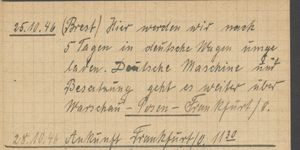 25.10.46 (Brest) Hier werden wir nach
5 Tagen in deutsche Wagen umge
laden. Deutsche Maschine und
Besatzung geht es weiter über
Warschau - Posen - Frankfurt/O.
28.10.46 Ankunft Frankfurt/O. 11 30